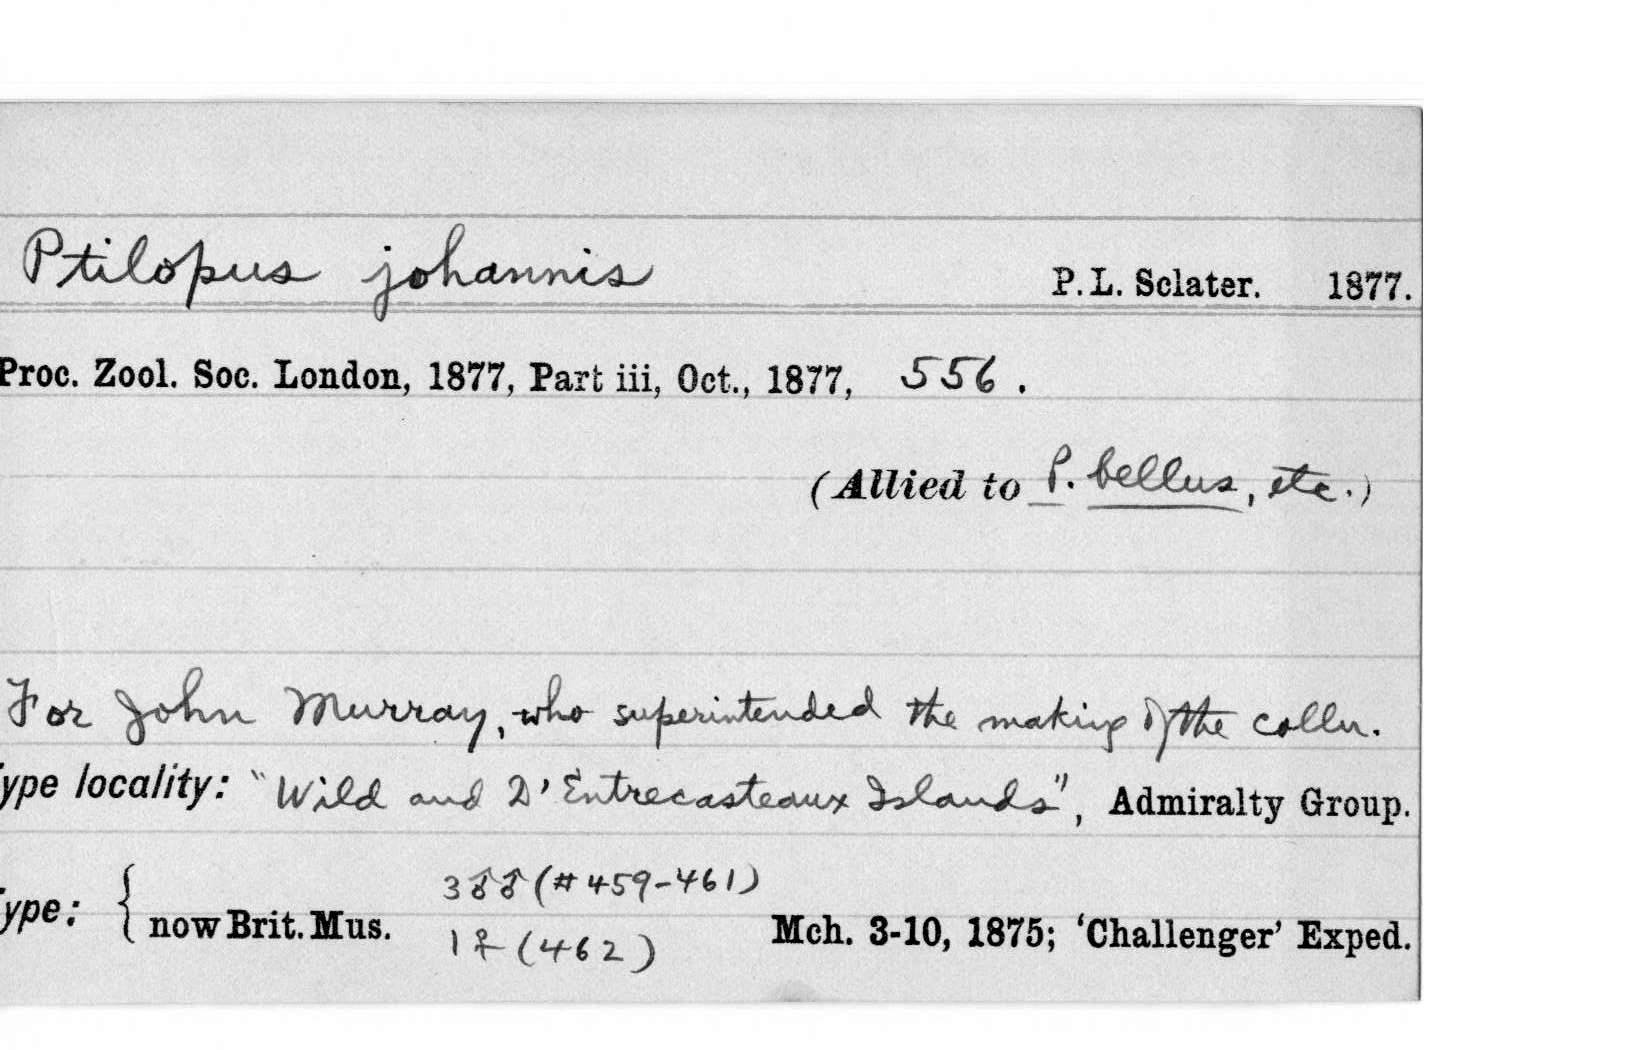 Ptilopus johannis P. L. Sclater. 1877.
Proc. Zool. Soc. London, 1877, Part iii, Oct., 1877, 556.
(Allied to P. bellus, etc.)
For John Murray, who superintended the making of the colln.
ype locality: "Wild and D'Entrecasteaux Islands", Admiralty Group.
3♂♂ (#459-461)
ype: { now Brit. Mus. 1♀ (462) Mch. 3-10, 1875; 'Challenger' Exped.